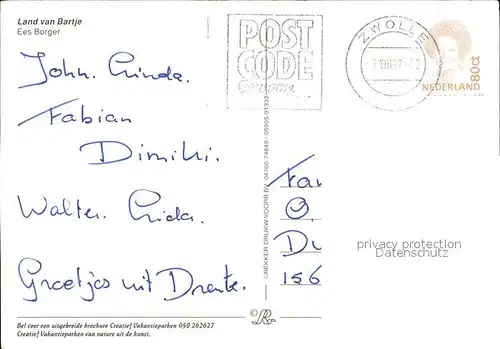 Land van Bartje
Ees Borger
POST
CODE
ZWOLLE
80ct
NEDERLAND
John. Linda.
Fabian
Dimitri.
Walter. Lida.
Groetjes uit Drente.
Fa
O.
D
156
privacy protection
Datenschutz
Bel voor een uitgebreide brochure Creatief Vakantieparken 050 262627
Creatief Vakantieparken van nature uit de kunst.